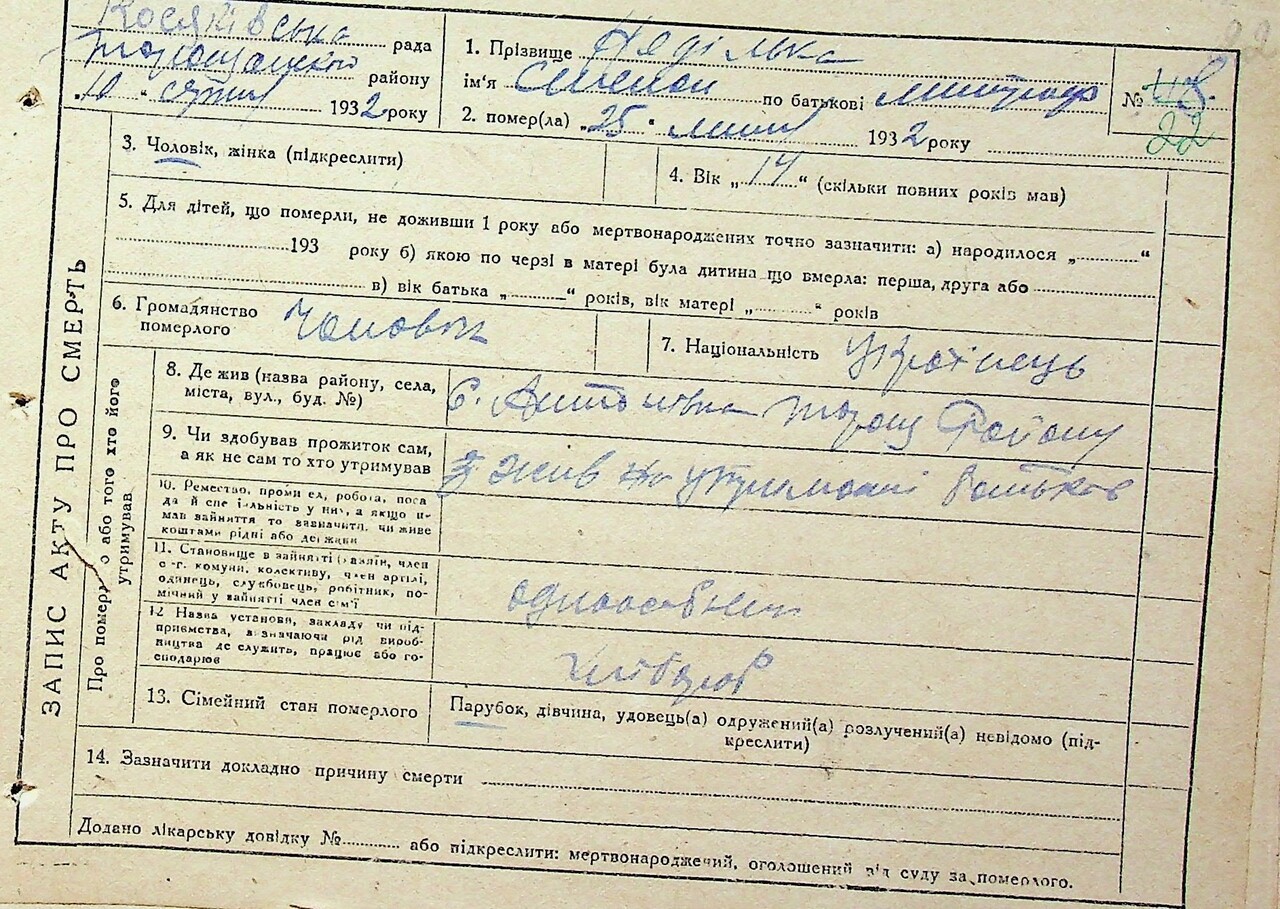 Косяківська рада
Таращанського району
„10“ серпня 1932 року
1. Прізвище Неділька
ім'я Степан по батькові Митроф
2. помер(ла) „25“ липня 1932 року
№
22
3. Чоловік, жінка (підкреслити)
4. Вік „14“ (скільки повних років мав)
5. Для дітей, що померли, не доживши 1 року або мертвонароджених точно зазначити: а) народилося „ “
193 року б) якою по черзі в матері була дитина що вмерла: перша, друга або
в) вік батька „ “ років, вік матері „ “ років
6. Громадянство померлого
Чоловік
7. Національність Українець
ЗАПИС АКТУ ПРО СМЕРТЬ
Про померл о або того хто його утримував
8. Де жив (назва району, села, міста, вул., буд. №)
с. Антонівка Таращ Району
9. Чи здобував прожиток сам, а як не сам то хто утримував
жив на утриманні батьков
10. Ремество, проми ел, робота, поса да й спе іяльність у них, а якщо н- мав зайняття то зазначити, чи живе коштами рідні або держави
11. Становище в зайнятті (хазяїн, член с.-г. комуни, колективу, член артілі, одинець, службовець, робітник, по- мічний у зайнятті член сім'ї
одноосібник
12 Назва установи, закладу чи під- приємства, в значаючи рід вироб- ництва де служить, працює або го- сподарює
хлібороб
13. Сімейний стан померлого
Парубок, дівчина, удовець(а) одружений(а) розлучений(а) невідомо (під-
креслити)
14. Зазначити докладно причину смерти
Додано лікарську довідку № або підкреслити: мертвонароджений, оголошений від суду за померлого.